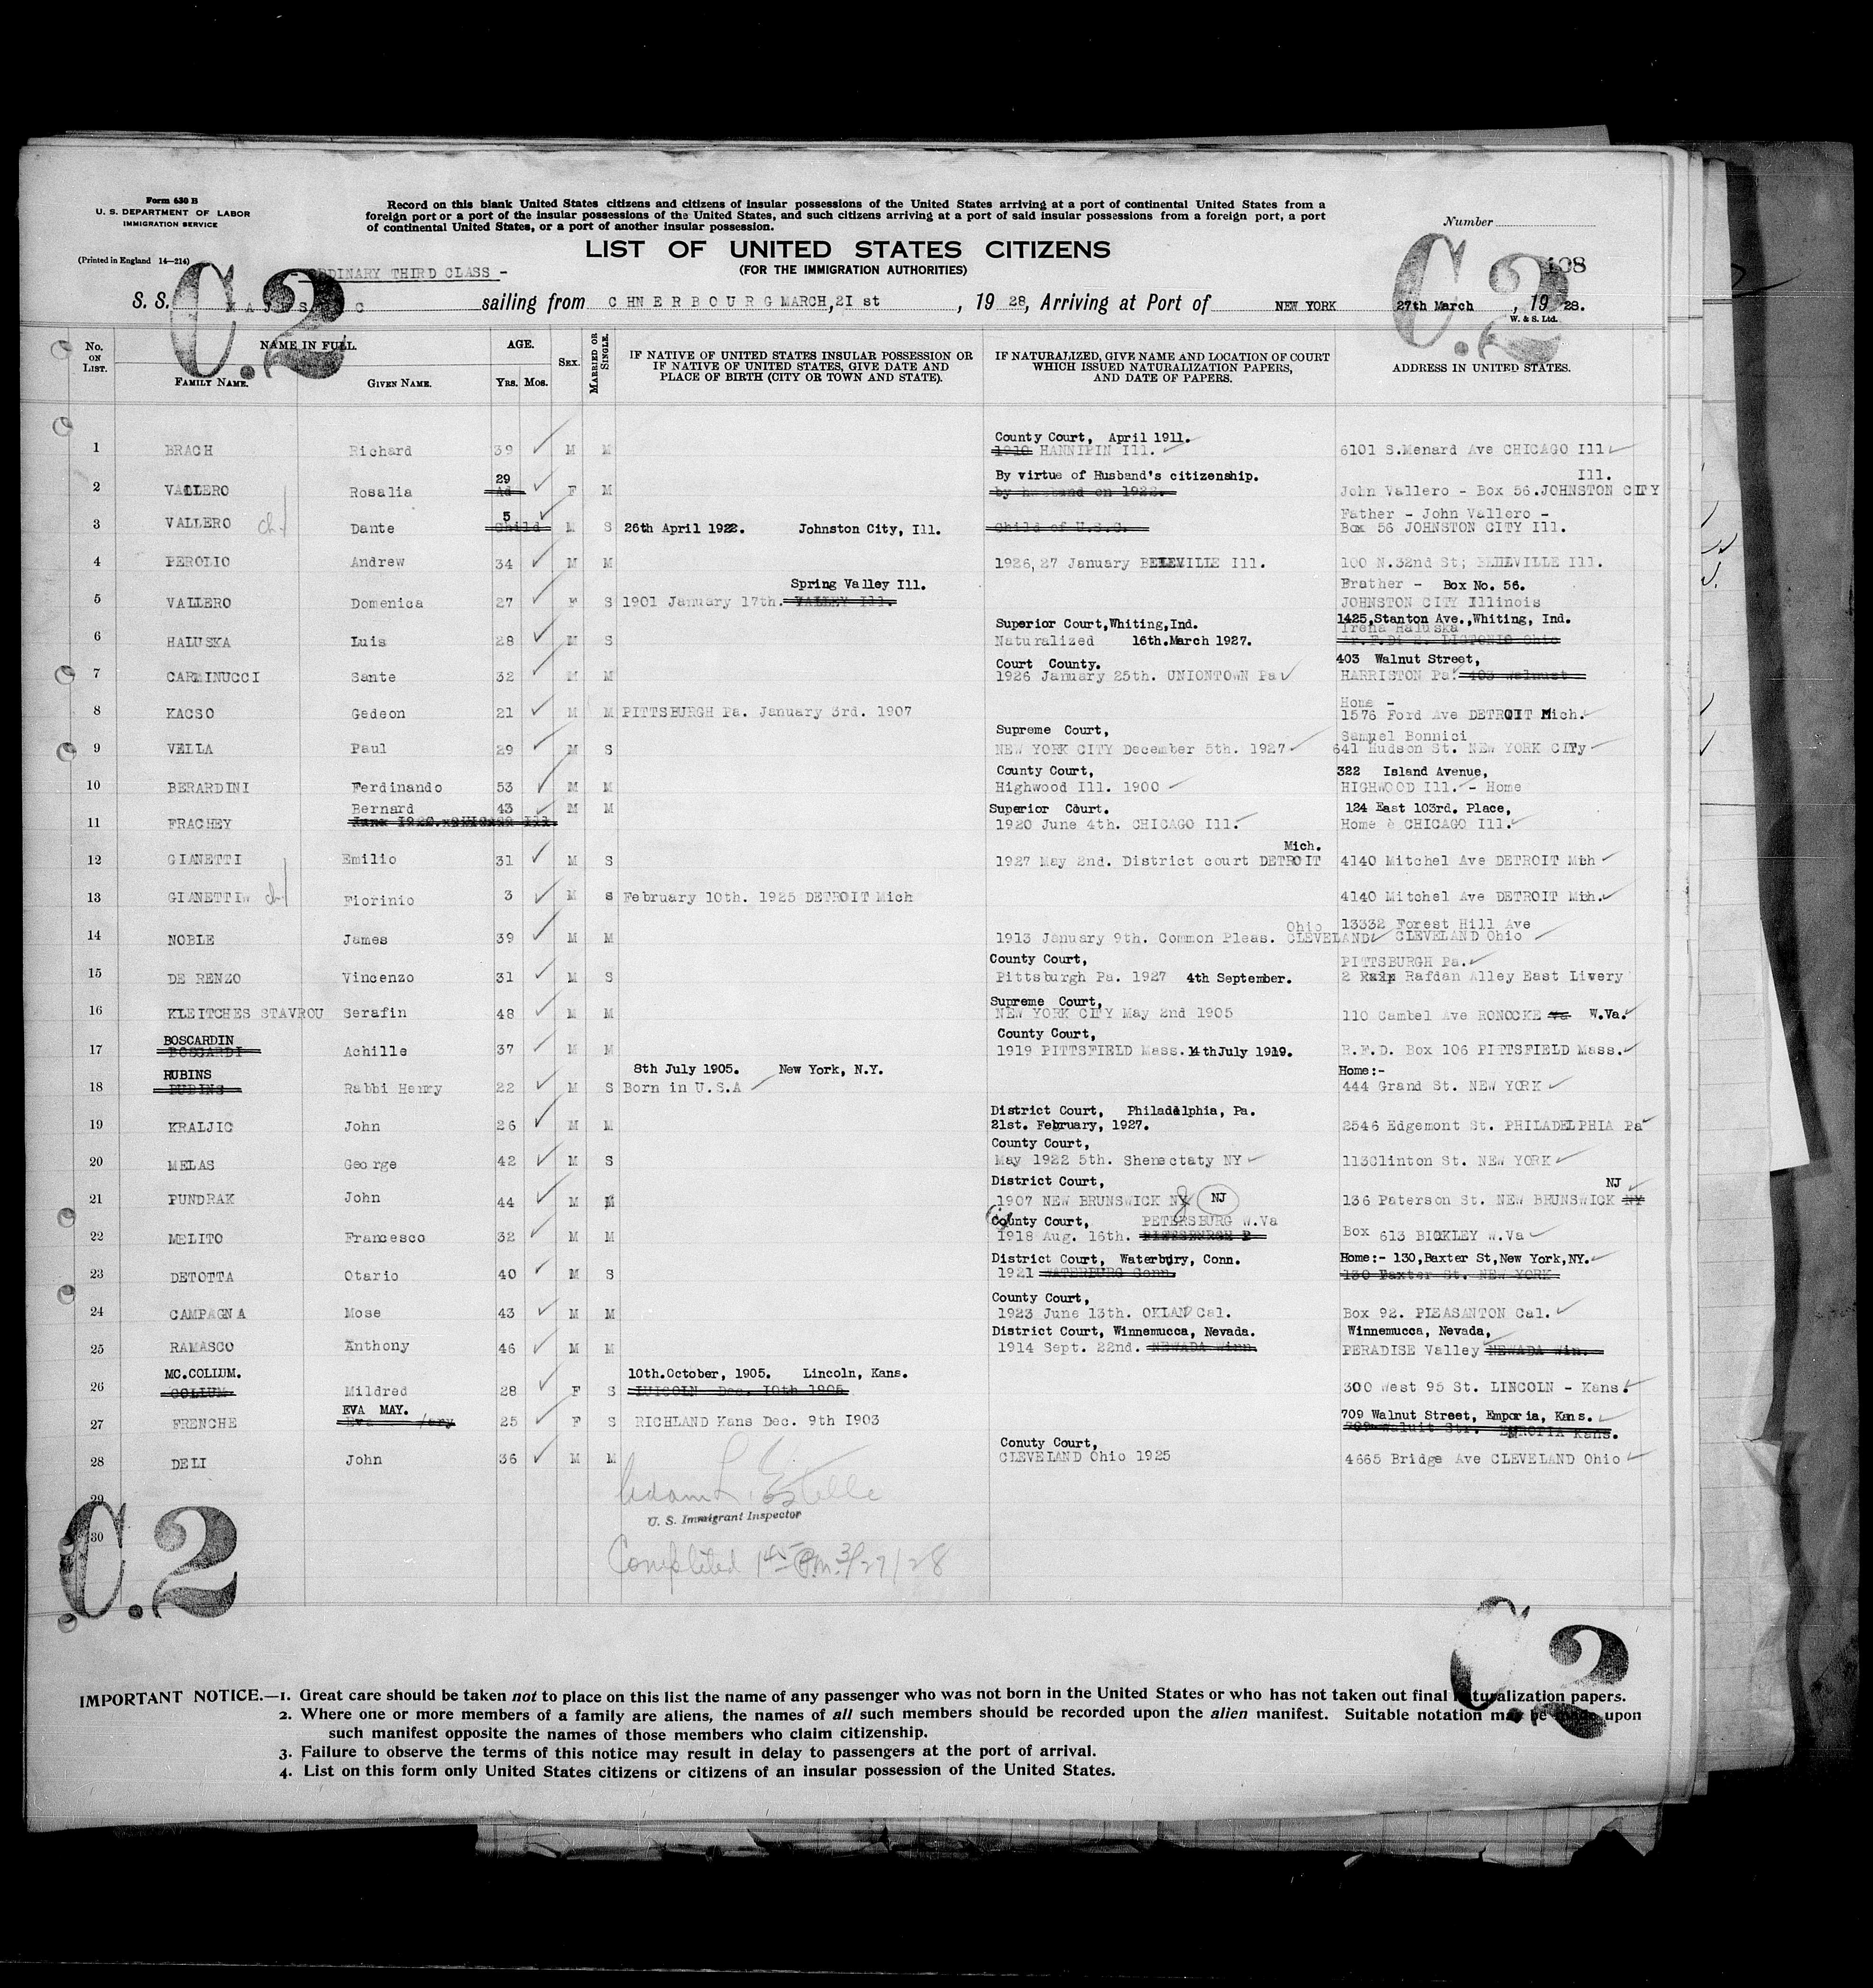 Form 630 B
U. S. DEPARTMENT OF LABOR
IMMIGRATION SERVICE
(Printed in England 14—214)
Record on this blank United States citizens and citizens of insular possessions of the United States arriving at a port of continental United States from a
foreign port or a port of the insular possessions of the United States, and such citizens arriving at a port of said insular possessions from a foreign port, a port
of continental United States, or a port of another insular possession.
Number
LIST OF UNITED STATES CITIZENS
(FOR THE IMMIGRATION AUTHORITIES)
- ORDINARY THIRD CLASS -
C.2
C.2
108
S. S. sailing from CHNERBOURG MARCH, 2I st , 19 28, Arriving at Port of NEW YORK 27th March , 19 28.
W. & S. Ltd.
No. ON LIST.
NAME IN FULL.
FAMILY NAME.
GIVEN NAME.
AGE.
Yrs. Mos.
SEX.
MARRIED OR SINGLE.
IF NATIVE OF UNITED STATES INSULAR POSSESSION OR
IF NATIVE OF UNITED STATES, GIVE DATE AND
PLACE OF BIRTH (CITY OR TOWN AND STATE).
IF NATURALIZED, GIVE NAME AND LOCATION OF COURT
WHICH ISSUED NATURALIZATION PAPERS,
AND DATE OF PAPERS.
ADDRESS IN UNITED STATES.
County Court, April 1911.
1 BRACH Richard 39 M M 1910 HANNIPIN Ill. 6101 S.Menard Ave CHICAGO Ill
29 By virtue of Husband's citizenship. Ill.
2 VALLERO Rosalia Ad F M by husband on 1922. John Vallero - Box 56.JOHNSTON CITY
5 Father - John Vallero -
3 VALLERO ch Dante Child M S 26th April 1922. Johnston City, Ill. Child of U.S.C. Box 56 JOHNSTON CITY Ill.
4 PEROLIO Andrew 34 M M 1926,27 January BELEVILLE Ill. 100 N.32nd St; BELEVILLE Ill.
Spring Valley Ill. Brather - Box No. 56.
5 VALLERO Domenica 27 F S 1901 January 17th. VALLEY Ill. JOHNSTON CITY Illinois
Superior Court,Whiting,Ind. 1425,Stanton Ave.,Whiting, Ind.
Irena Haluska
6 HALUSKA Luis 28 M S Naturalized 16th.March 1927.
Court County. 403 Walnut Street,
7 CARMINUCCI Sante 32 M M 1926 January 25th. UNIONTOWN Pa HARRISTON Pa. 403 Walnust
Home -
8 KACSO Gedeon 21 M M PITTSBURGH Pa. January 3rd. 1907 1576 Ford Ave DETROIT Mich.
Supreme Court, Samuel Bonnici
9 VELLA Paul 29 M S NEW YORK CITY December 5th. 1927 641 Hudson St. NEW YORK CITy
County Court, 322 Island Avenue,
10 BERARDINI Ferdinando 53 M M Highwood Ill. 1900 HIGHWOOD Ill. - Home
Bernard 43 M M Superior Court. 124 East 103rd. Place,
11 FRACHEY 1920 June 4th. CHICAGO Ill. Home è CHICAGO Ill.
Mich.
12 GIANETTI Emilio 31 M S 1927 May 2nd. District court DETROIT 4140 Mitchel Ave DETROIT Mih
13 GIANETTI ch Fiorinio 3 M S February 10th. 1925 DETROIT Mich 4140 Mitchel Ave DETROIT Mih.
Ohio 13332 Forest Hill Ave
14 NOBLE James 39 M M 1913 January 9th. Common Pleas. CLEVELAND CLEVELAND Ohio
County Court, PITTSBURGH Pa.
15 DE RENZO Vincenzo 31 M S Pittsburgh Pa. 1927 4th September. 2 Rafdan Alley East Livery
Supreme Court,
16 KLEITCHES STAVROU Serafin 48 M M NEW YORK CITY May 2nd 1905 110 Cambel Ave RONOCKE Va W.Va.
BOSCARDIN County Court,
17 BOSCARDI Achille 37 M M 1919 PITTSFIELD Mass. 14thJuly 1919. R.F.D. Box 106 PITTSFIELD Mass.
RUBINS 8th July 1905. New York, N.Y. Home:-
18 RUBINS Rabbi Henry 22 M S Born in U.S.A 444 Grand St. NEW YORK
District Court, Philadelphia, Pa.
19 KRALJIC John 26 M M 21st. February, 1927. 2546 Edgemont St. PHILADELPHIA Pa
County Court,
20 MELAS George 42 M S May 1922 5th. Shenectaty NY 113Clinton St. NEW YORK
District Court, NJ
21 PUNDRAK John 44 M M 1907 NEW BRUNSWICK NY NJ 136 Paterson St. NEW BRUNSWICK NY
County Court, PETERSBURG W.Va
22 MELITO Francesco 32 M M 1918 Aug. 16th. PITTSBURGH P Box 613 BICKLEY W.Va
District Court, Waterbury, Conn. Home:- 130,Baxter St,New York,NY.
23 DETOTTA Otario 40 M S 1921 WATERBURG Conn. 130 Baxter St. NEW YORK
County Court,
24 CAMPAGNA Mose 43 M M 1923 June 13th. OKLAND Cal. Box 92. PLEASANTON Cal.
District Court, Winnemucca, Nevada. Winnemucca, Nevada,
25 RAMASCO Anthony 46 M M 1914 Sept. 22nd. NEWADA Winn. PERADISE Valley NEWADA Win.
MC.COLLUM. 10th.October, 1905. Lincoln, Kans.
26 COLLUM. Mildred 28 F S LUICOLN Dec. 10th 1905 300 West 95 St. LINCOLN - Kans.
EVA MAY. 709 Walnut Street, Emporia, Kans.
27 FRENCHE Eva 25 F S RICHLAND Kans Dec. 9th I903 709 Waluit Str. EMROPIA Kans.
Conuty Court,
28 DELI John 36 M M CLEVELAND Ohio 1925 4665 Bridge Ave CLEVELAND Ohio
29
U. S. Immigrant Inspector
30
Completed 1 45 P.M. 3/27/28
C.2
C.2
IMPORTANT NOTICE.—1. Great care should be taken not to place on this list the name of any passenger who was not born in the United States or who has not taken out final naturalization papers.
2. Where one or more members of a family are aliens, the names of all such members should be recorded upon the alien manifest. Suitable notation may be made upon
such manifest opposite the names of those members who claim citizenship.
3. Failure to observe the terms of this notice may result in delay to passengers at the port of arrival.
4. List on this form only United States citizens or citizens of an insular possession of the United States.